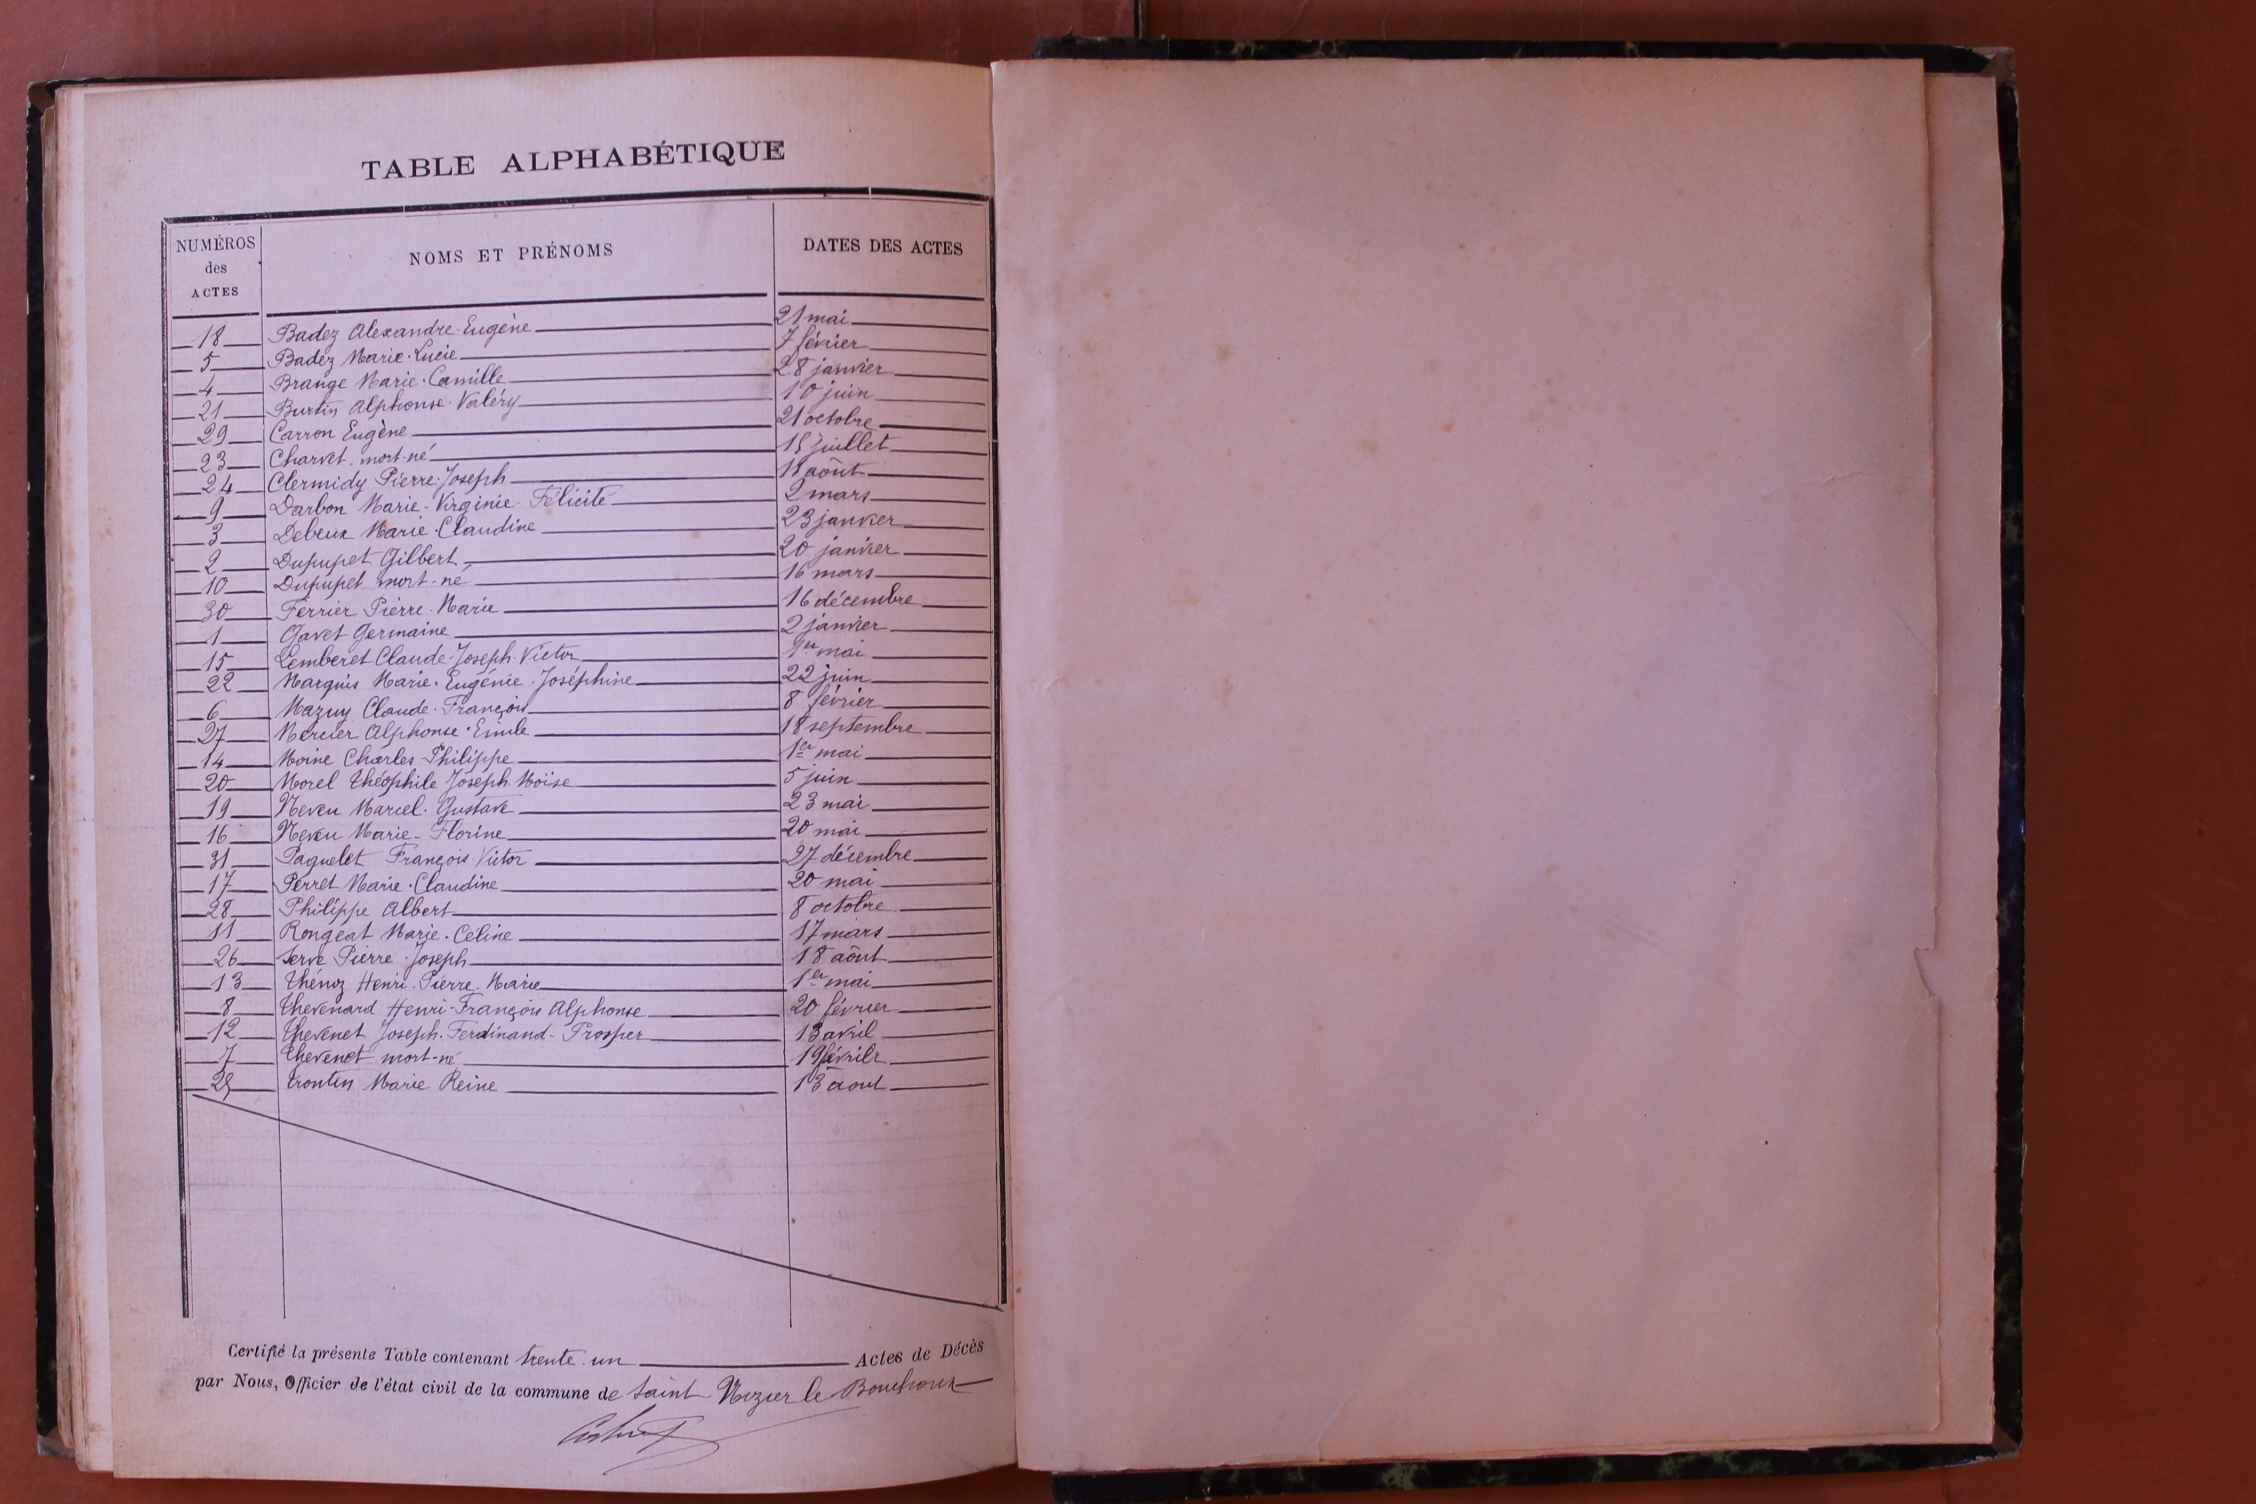 TABLE ALPHABÉTIQUE
NUMÉROS des ACTES NOMS ET PRÉNOMS DATES DES ACTES
18 Badez Alexandre-Eugène 21 mai
5 Badez Marie-Lucie 7 février
4 Brange Marie-Camille 28 janvier
21 Burtin Alphonse-Valéry 10 juin
29 Carron Eugène 21 octobre
23 Charvet mort-né 15 juillet
24 Clermidy Pierre-Joseph 11 aôut
9 Darbon Marie-Virginie-Félicité 2 mars
3 Debeux Marie-Claudine 23 janvier
2 Dupupet Gilbert 20 janvier
10 Dupupet mort-né 16 mars
30 Ferrier Pierre-Marie 16 décembre
1 Gavet Germaine 2 janvier
15 Lemberet Claude-Joseph-Victor 1er mai
22 Marguis Marie-Eugénie-Joséphine 22 juin
6 Mazuy Claude-François 8 février
27 Mercier Alphonse-Emile 18 septembre
14 Moine Charles-Philippe 1er mai
20 Morel Théophile Joseph-Moïse 5 juin
19 Neveu Marcel-Gustave 23 mai
16 Neveu Marie-Florine 20 mai
31 Paquelet François-Victor 27 décembre
17 Perret Marie-Claudine 20 mai
28 Philippe Albert 8 octobre
11 Rongeat Marie-Celine 17 mars
26 Serve Pierre-Joseph 18 aôut
13 Thénoz Henri-Pierre-Marie 1er mai
8 Thevenard Henri-François Alphonse 20 février
12 Thevenet Joseph-Ferdinand-Prosper 13 avril
7 Thevenet mort-né 19 février
25 Trontin Marie Reine 13 aout
Certifié la présente Table contenant trente-un Actes de Décès
par Nous, Officier de l'état civil de la commune de Saint Nizier le Bouchoux